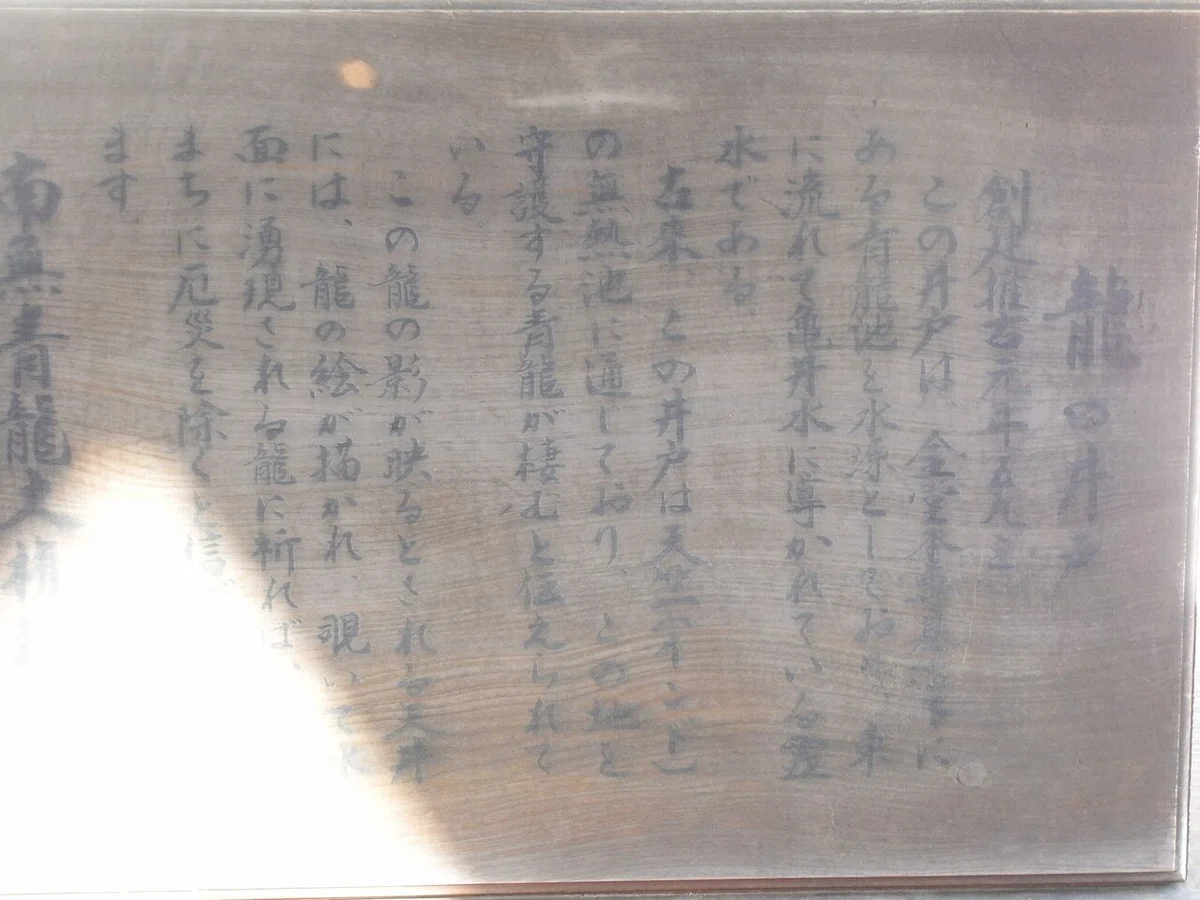 龍の井戸
創建推古元年五九三
この井戸は、金堂本尊真下に
ある青龍池を水源としており、東
に流れて亀井水に導かれている霊
水である
古来、この井戸は天竺(インド)
の無熱池に通じており、この地を
守護する青龍が棲むと伝えられて
いる。
この龍の影が映るとされる天井
には、龍の絵が描かれ、覗いて
面に湧現される龍に祈れば、
まちに厄災を除くと信
ます
南無青龍大